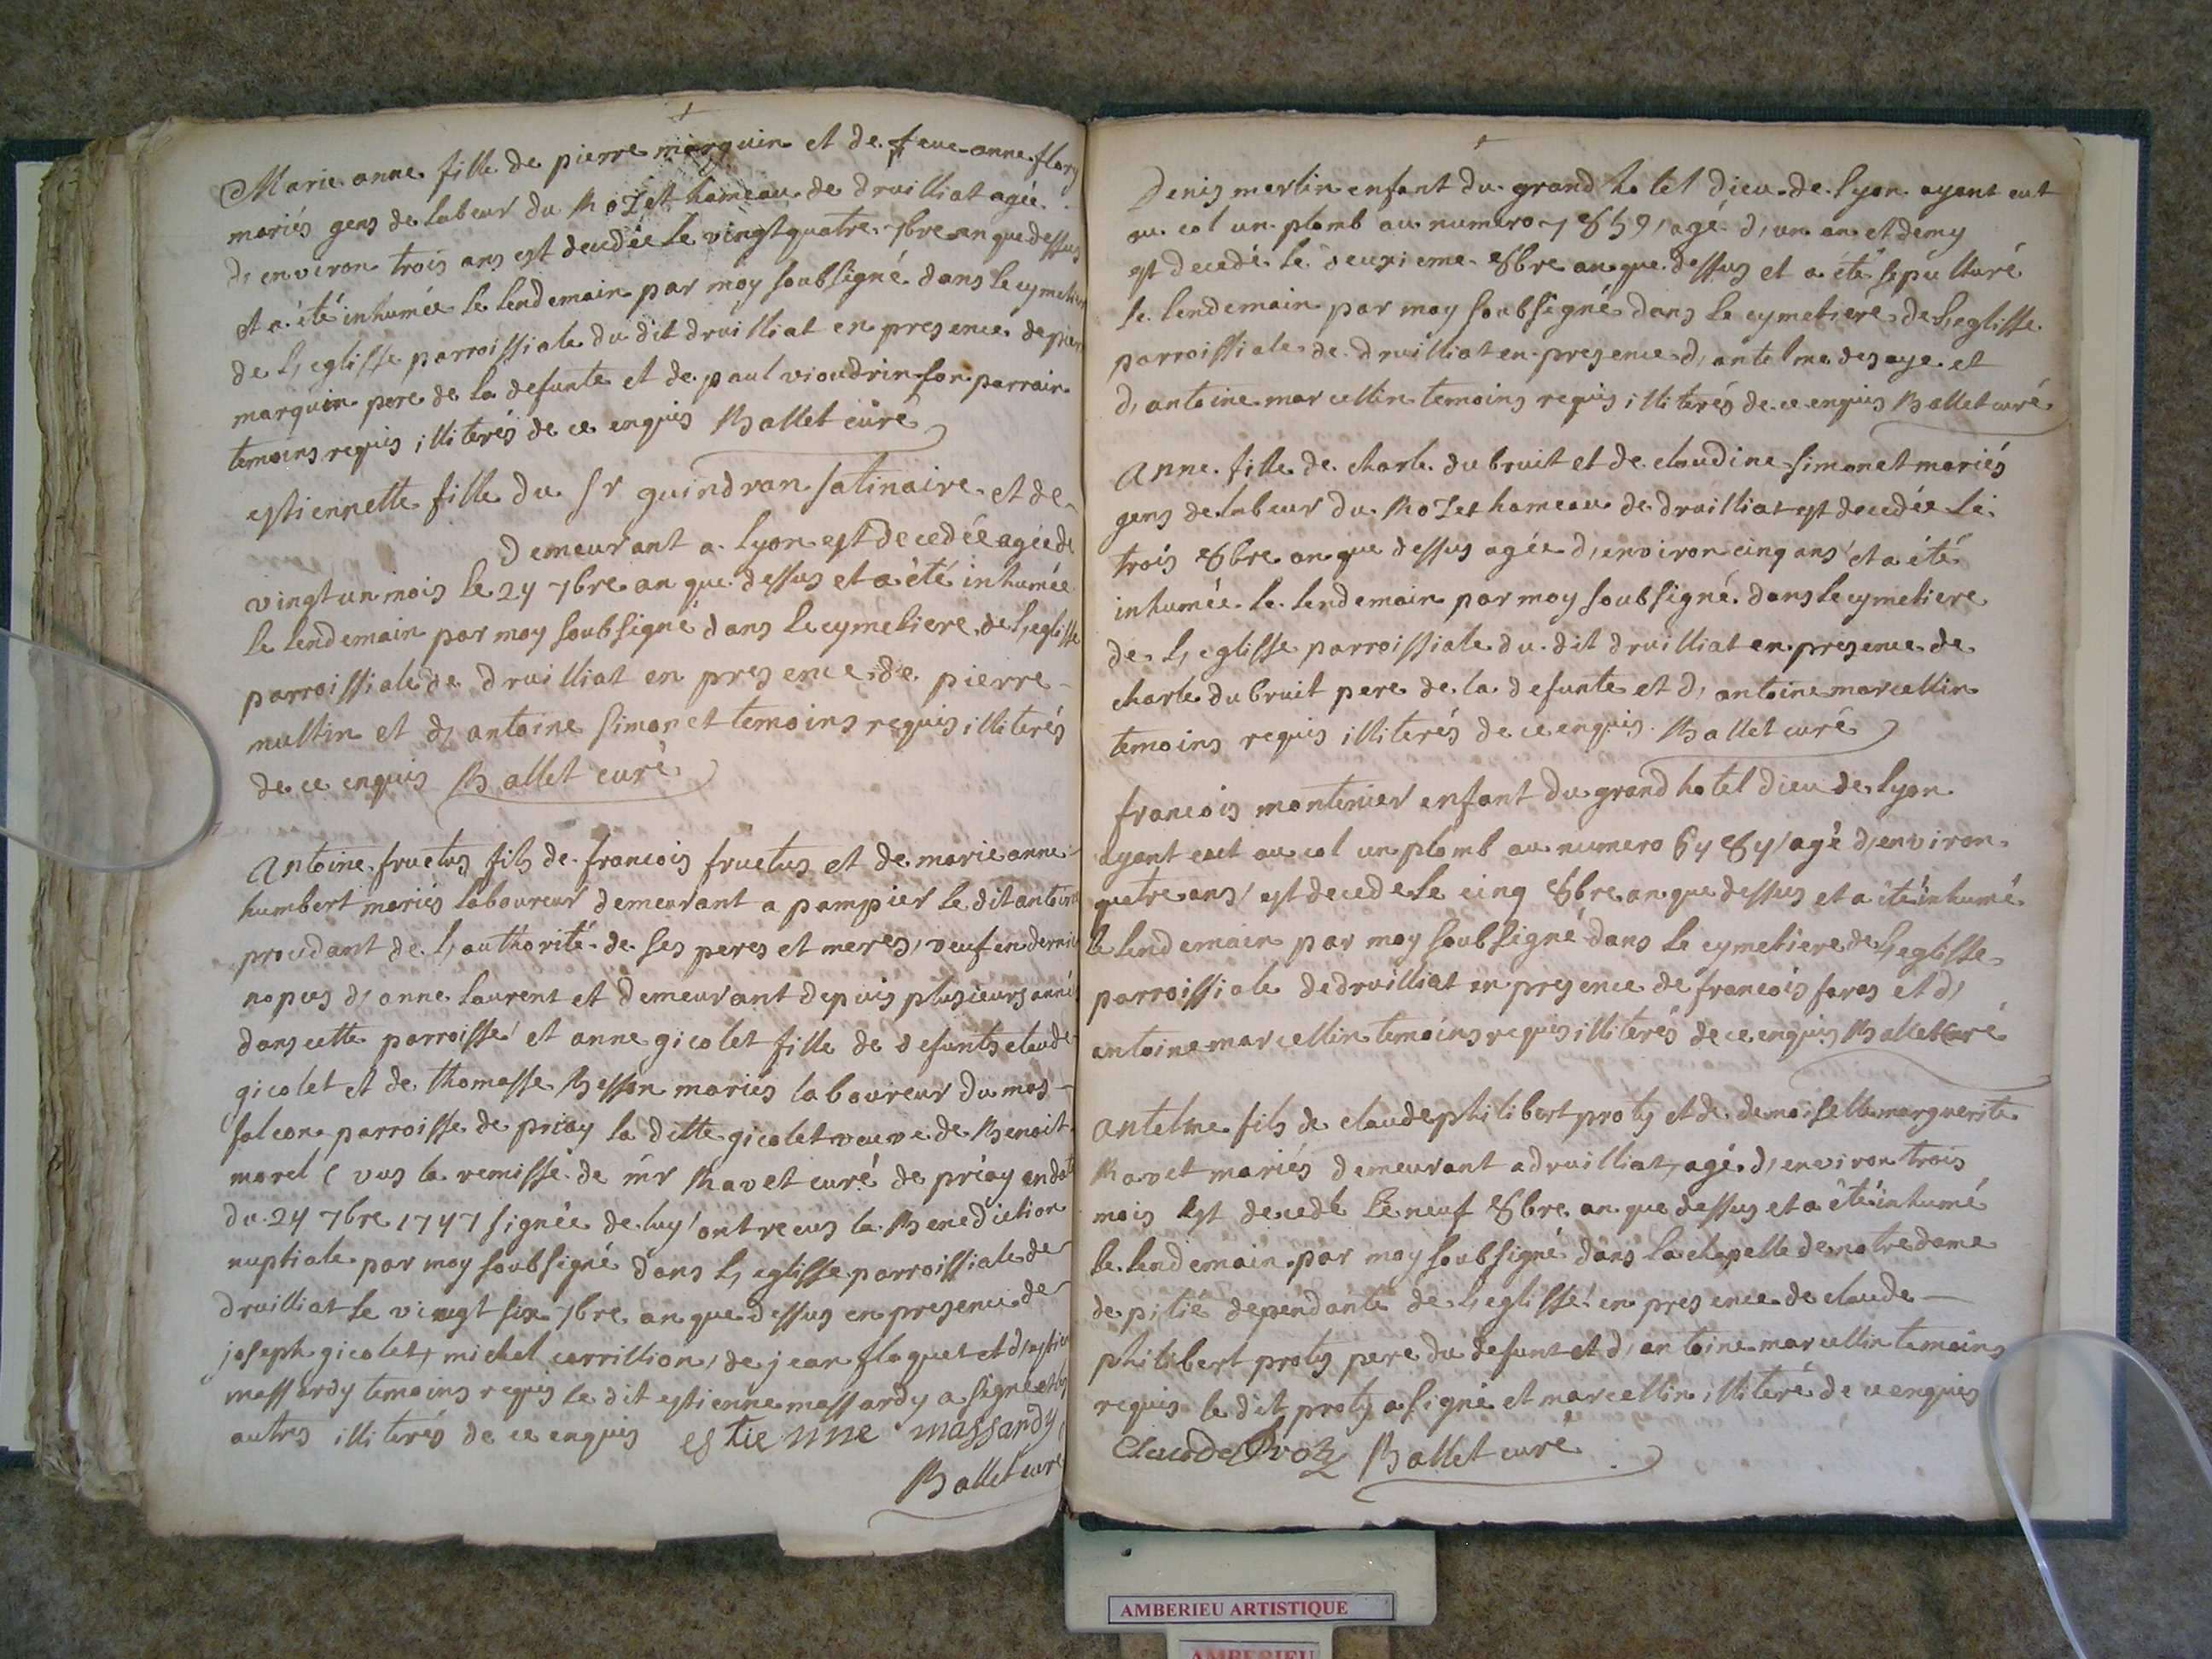 Marie anne fille de pierre marguin et de feue anne flory
mariés gens de labeur du Rozet hameau de druilliat agée
d, environ trois ans est decedée le vingt quatre 7bre an que dessus
et a été inhumée le lendemain par moy soubsigné dans le cymetiere
de l, eglisse parroissiale du dit druilliat en presence de pierre
marguin pere de la defunte et de paul vioudrin son parrain
temoins requis illiterés de ce enquis Ballet curé
estiennette fille du Sr guindran satinaire et de
demeurant a Lyon est decedée agée de
vingt un mois le 24 7bre an que dessus et a été inhumée
le lendemain par moy soubsigné dans le cymetiere de l, eglisse
parroissiale de druilliat en presence de pierre
multin et d, antoine simonet temoins requis illiterés
de ce enquis Ballet curé
Antoine fructus fils de francois fructus et de marie anne
humbert mariés laboureur demeurant a pampier le dit antoine
procedant de l, authorité de ses peres et meres, veuf en dernie
nopces d, anne laurent et demeurant depuis plusieurs anné
dans cette parroisse et anne gicolet fille de defunts claude
gicolet et de thomasse Besson mariés laboureur du mas
falcon parroisse de priay la ditte gicolet veuve de Benoit
morel ( vus la remisse de mr Ravet curé de priay en date
du 24 7bre 1747 signée de luy ont recus la Benediction
nuptiale par moy soubsigné dans l, eglisse parroissiale de
druilliat le vingt six 7bre an que dessus en presence de
joseph gicolet, michel carrillion, de jean floquet et d, estien
massardy temoins requis le dit estienne massardy a signé et les
autres illiterés de ce enquis estienne massardy
Ballet curé
Denis merlin enfant du grand hotel dieu de Lyon ayant eut
au col un plomb au numero 7859, agé d, un an et demy
est decedé le deuxieme 8bre an que dessus et a été sepulturé
le lendemain par moy soubsigné dans le cymetiere de l, eglisse
parroissiale de druilliat en presence d, antelme desaye et
d, antoine marcellin temoins requis illiterés de ce enquis Ballet curé
Anne fille de charle du bruit et de claudine simonet mariés
gens de labeur du Rozet hameau de druilliat est decedée le
trois 8bre an que dessus agée d, environ cinq ans et a été
inhumée le lendemain par moy soubsigné dans le cymetiere
de l, eglisse parroissiale du dit druilliat en presence de
charle du bruit pere de la defunte et d, antoine marcellin
temoins requis illiterés de ce enquis Ballet curé
francois montenier enfant du grand hotel dieu de lyon
ayant eut au col un plomb au numero 6484, agé d, environ
quatre ans, est decede le cinq 8bre an que dessus et a été inhumé
le lendemain par moy soubsigné dans le cymetiere de l, eglisse
parroissiale de druilliat en presence de francois faras et d,
antoine marcellin temoins requis illiterés de ce enquis Ballet curé
antelme fils de claude philibert proty et de demoiselle marguerite
Ravet mariés demeurant a druilliat, agé d, environ trois
mois est decedé le neuf 8bre an que dessus et a été inhumé
le lendemain par moy soubsigné dans la chapelle de notre dame
de pitié dependante de l, eglisse en presence de claude
philibert proty pere du defunt et d, antoine marcellin temoins
requis le dit proty a signé et marcellin illiteré de ce enquis
Claude Ballet curé
AMBERIEU ARTISTIQUE
AMBERIEU